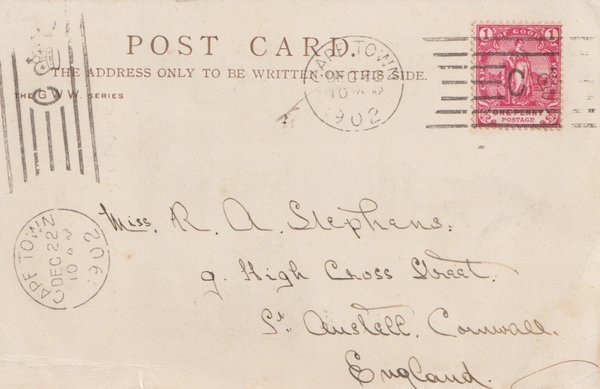 POST CARD.
THE ADDRESS ONLY TO BE WRITTEN ON THIS SIDE.
THE G.W.W. SERIES
C
CAPE TOWN
10
1902
C
1 OF GOOD 1
ONE PENNY
POSTAGE
CAPE TOWN
DEC 22
10
1902
Miss. R. A. Stephens.
9. High Cross Street.
St. Austell. Cornwall.
England.